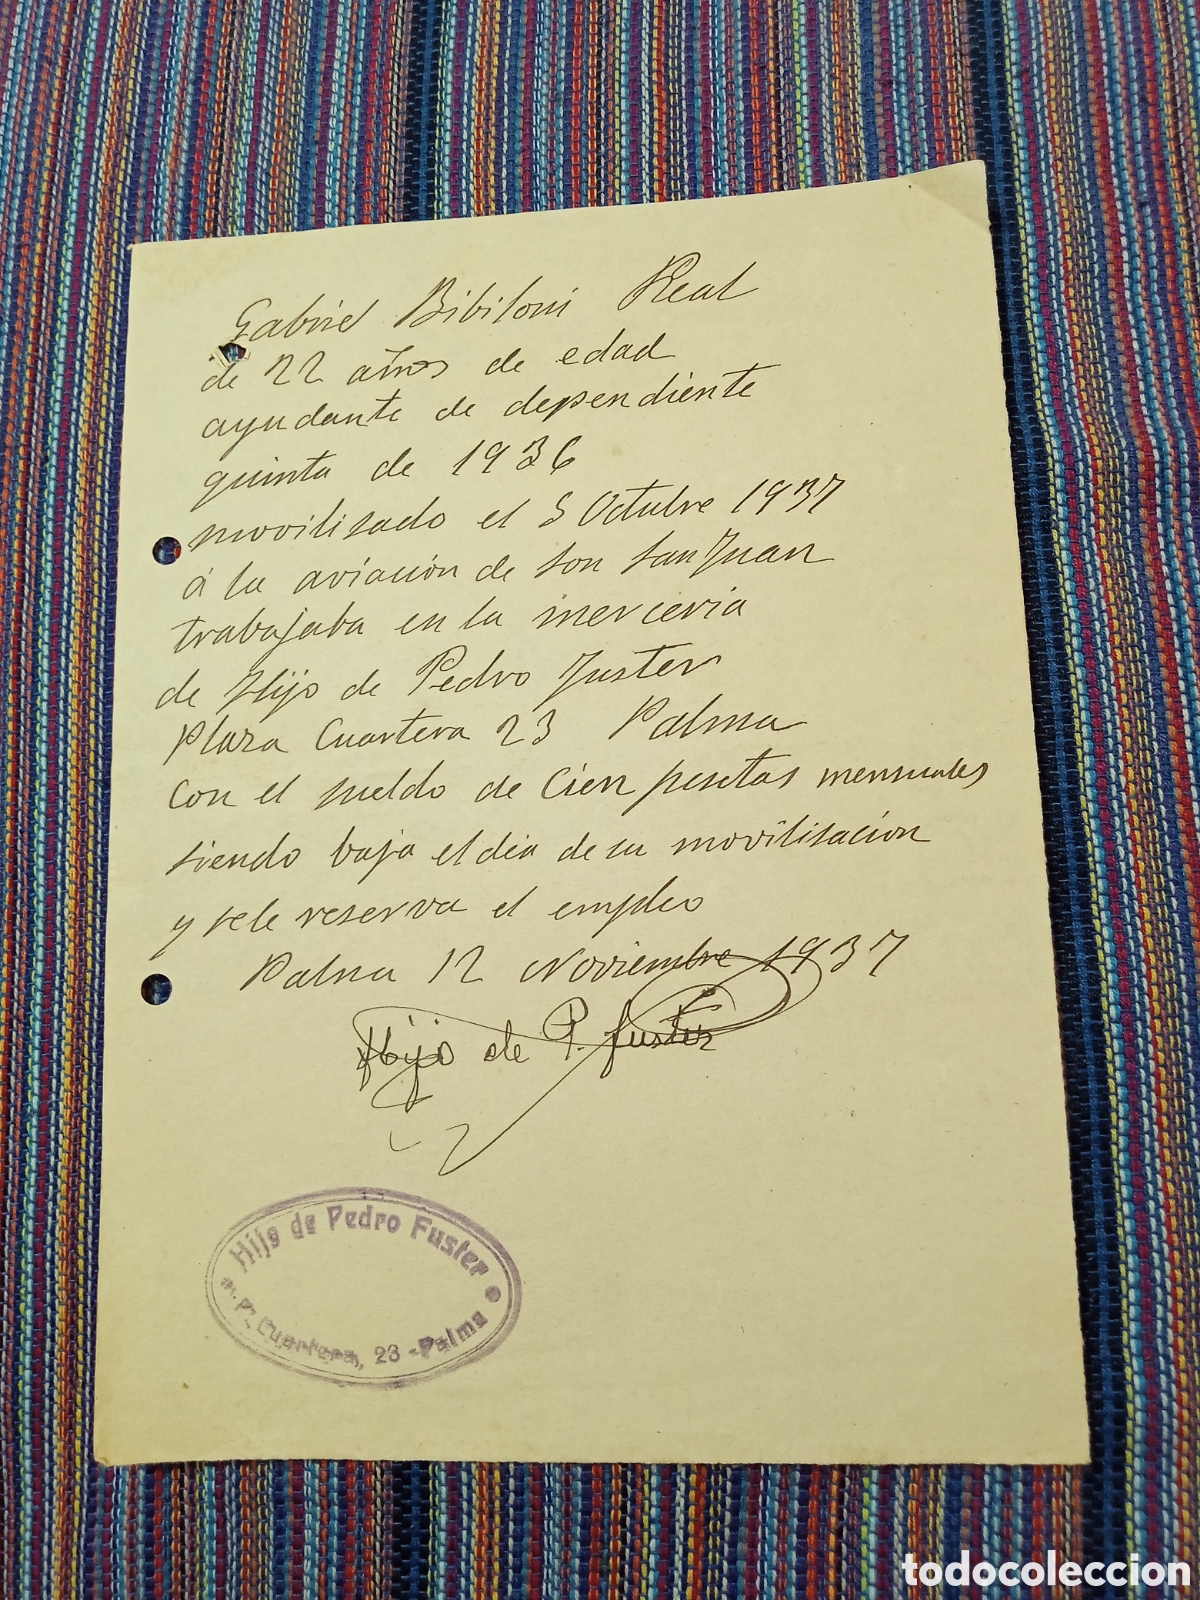 Gabriel Bibiloni Real
de 22 años de edad
ayudante de dependiente
quinta de 1936
movilisado el 5 Octubre 1937
á la aviación de son San Juan
trabajaba en la merceria
de Hijo de Pedro Fuster
Plaza Cuartera 23 Palma
Con el sueldo de Cien pesetas mensuales
siendo baja el dia de su movilisación
y sele reserva el empleo
Palma 12 Noviembre 1937
Hijo de P. Fuster
Hijo de Pedro Fuster
Cuartera, 23 - Palma
todocoleccion